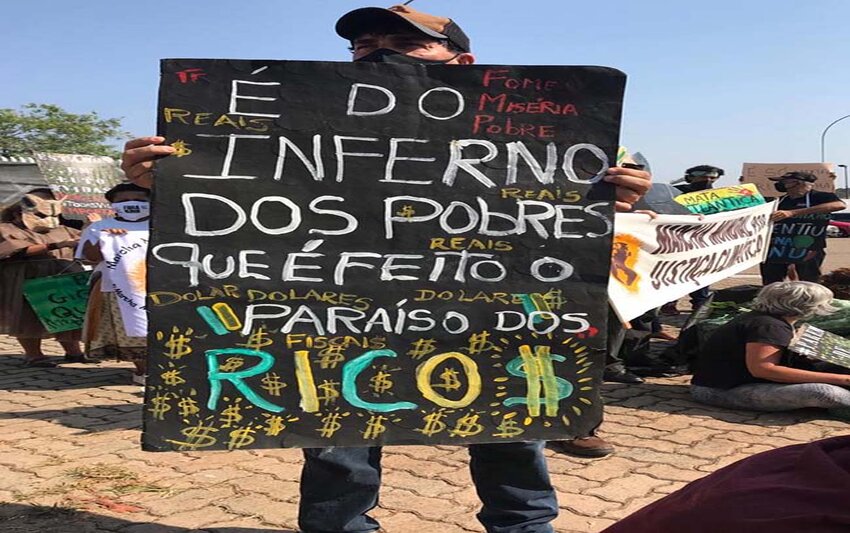 TF
É DO
FOME
MISÉRIA
POBRE
REAIS
INFERNO
REAIS
DOS POBRES
REAIS
QUE É FEITO O
DOLAR DOLARES DOLARE
PARAÍSO DOS
FISCAIS
RICO$
MATA
ATLÂNTICA
MARCHA MUNDIAL POR
JUSTIÇA CLIMÁTICA